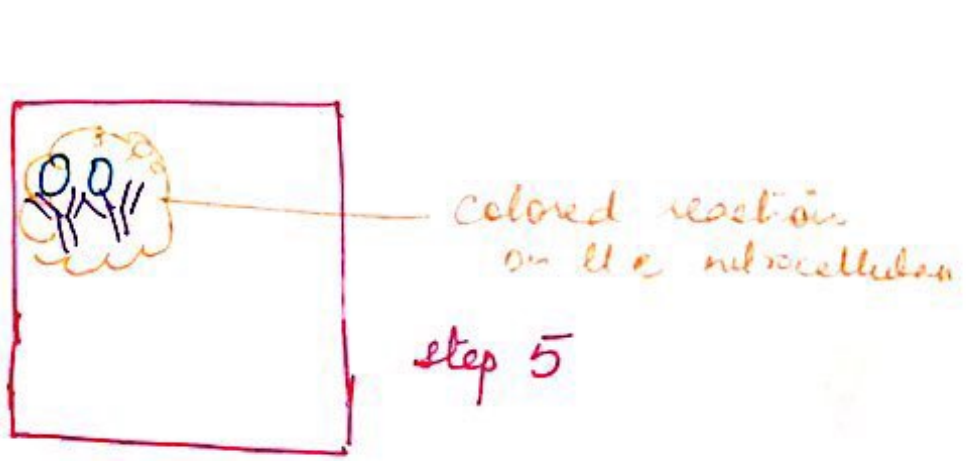 colored reaction
on the nitrocellulose
step 5